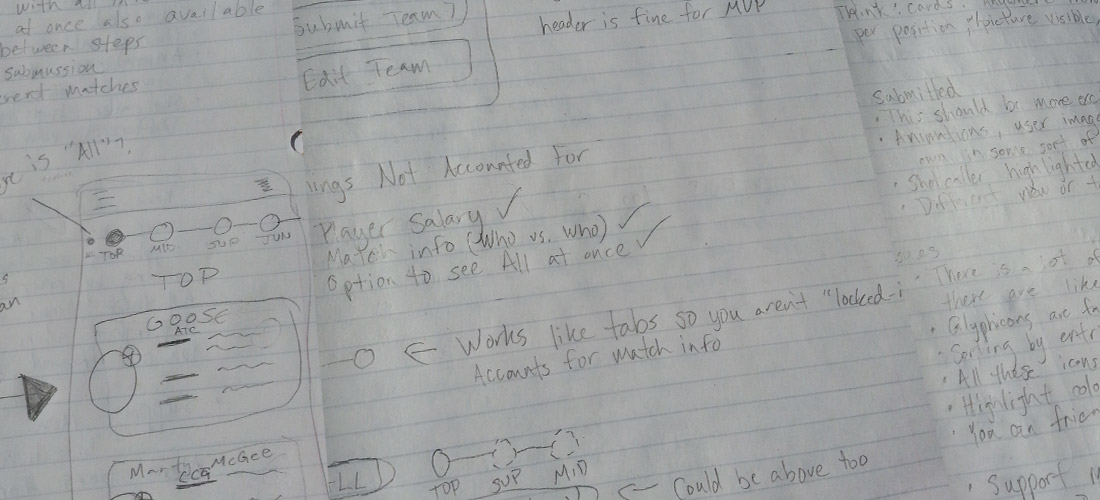 with all
at once also available
between steps
submussion
matches
is "All"?
TOP MID SUP JUN
TOP
GOOSE
ATC
Marty McGee
CCG
Submit Team?
Edit Team
header is fine for MVP
ings Not Accounted For
Player Salary ✓
Match info (Who vs. who) ✓
Option to see All at once ✓
← Works like tabs so you aren't "locked-i
Accounts for match info
LL
TOP SUP MID
← Could be above too
Think: cards.
per position, picture visible,
Submitted
• This should be more exc
• Animations, user imag
own in some sort of
• Shotcaller highlighted
• Different view or t
• There is a lot of
there are like
• Glyphicons are fa
• Sorting by entr
• All these icons
• Highlight colo
• You can frien
• Support